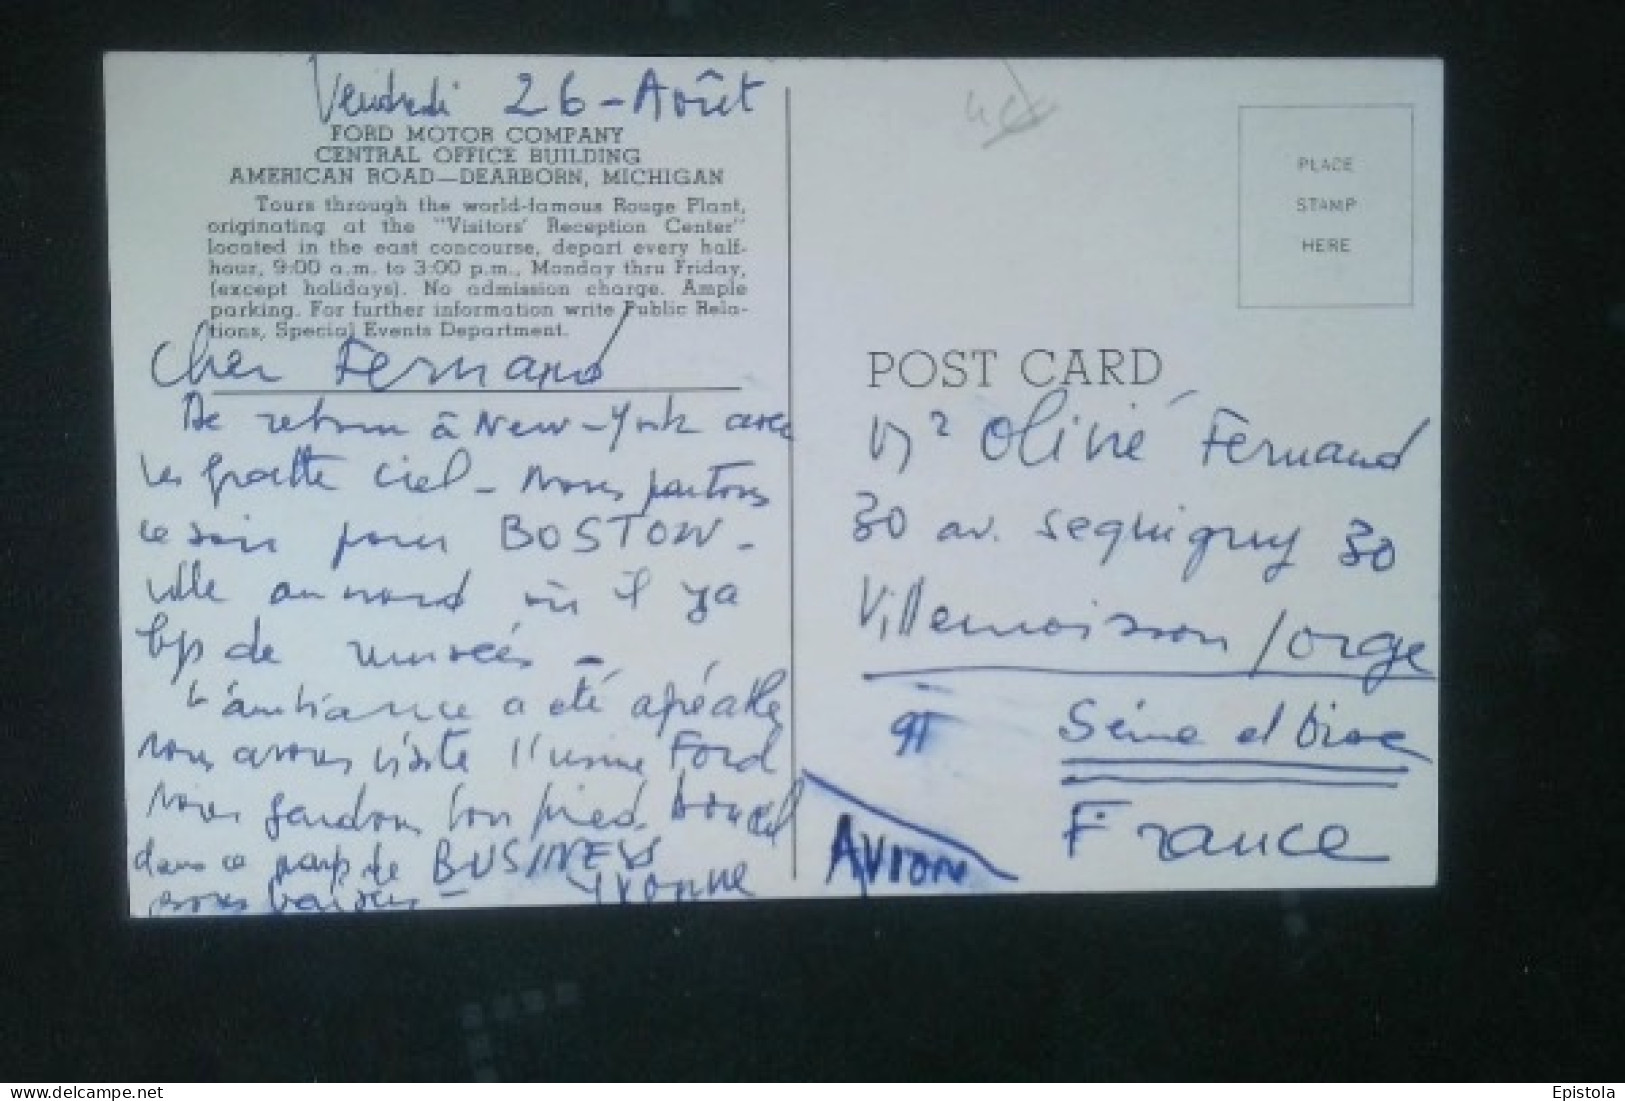 Vendredi 26 - Août
FORD MOTOR COMPANY
CENTRAL OFFICE BUILDING
AMERICAN ROAD—DEARBORN, MICHIGAN
Tours through the world-famous Rouge Plant,
originating at the "Visitors' Reception Center"
located in the east concourse, depart every half-
hour, 9:00 a.m. to 3:00 p.m., Monday thru Friday,
(except holidays). No admission charge. Ample
parking. For further information write Public Rela-
tions, Special Events Department.
Cher Fernand
De retour à New-York avec
les gratte ciel - Nous partons
ce soir pour BOSTON -
ville au nord où il y a
bp de musées -
L'ambiance a été agréable
nous avons visité l'usine Ford
Nous gardons bon pied
dans ce pays de BUSINESS
bons baisers - Yvonne
PLACE
STAMP
HERE
POST CARD
Mr Olivié Fernand
30 av. Sequigny 30
Villemoisson / orge
91 Seine et Oise
France
AVION
Epistola